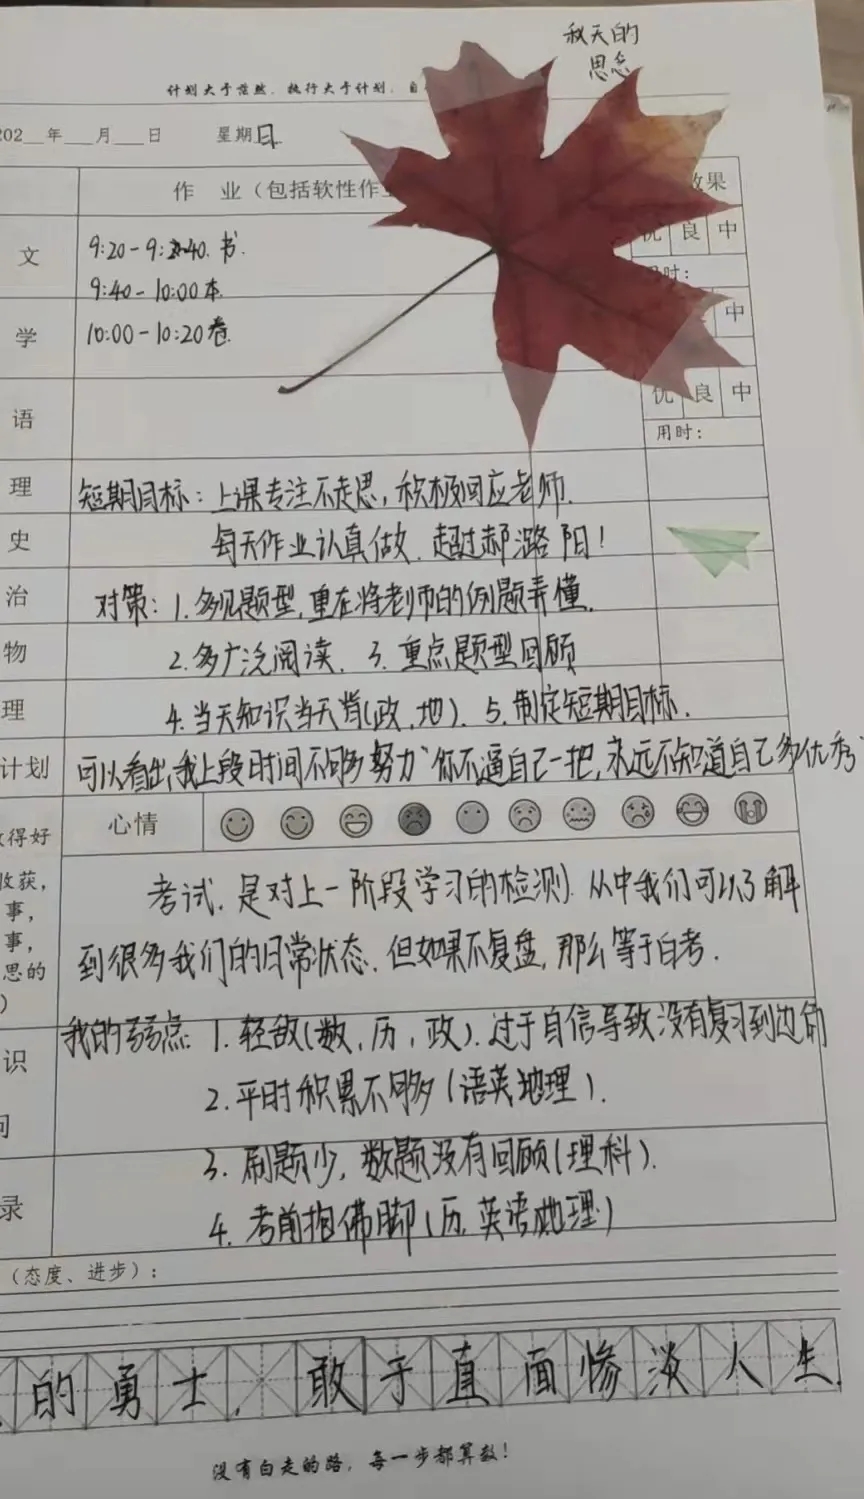 秋天的
思念
计划大于茫然，执行大于计划，自
202__年___月___日 星期日
作 业（包括软性作业 效果
文 9:20-9:40.书. 优 良 中
9:40-10:00本 用时：
学 10:00-10:20卷 中
语 优 良 中
用时：
理 短期目标：上课专注不走思，积极回应老师.
史 每天作业认真做.超过郝潞阳！
治 对策：1.多见题型,重在将老师的例题弄懂.
物 2.多广泛阅读. 3.重点题型回顾
理 4.当天知识当天背(政,地). 5.制定短期目标.
计划 可以看出,我上段时间不够努力“你不逼自己一把,永远不知道自己多优秀”
得好 心情
收获， 考试.是对上一阶段学习的检测.从中我们可以了解
事，
事， 到很多我们的日常状态.但如果不复盘,那么等于白考.
思的
）
我的弱点: 1.轻敌(数,历,政).过于自信导致没有复习到边角
识 2.平时积累不够多(语英地理).
问
3.刷题少,数题没有回顾(理科).
录 4.考前抱佛脚(历,英语地理)
（态度、进步）：
的勇士，敢于直面惨淡人生.
没有白走的路，每一步都算数！